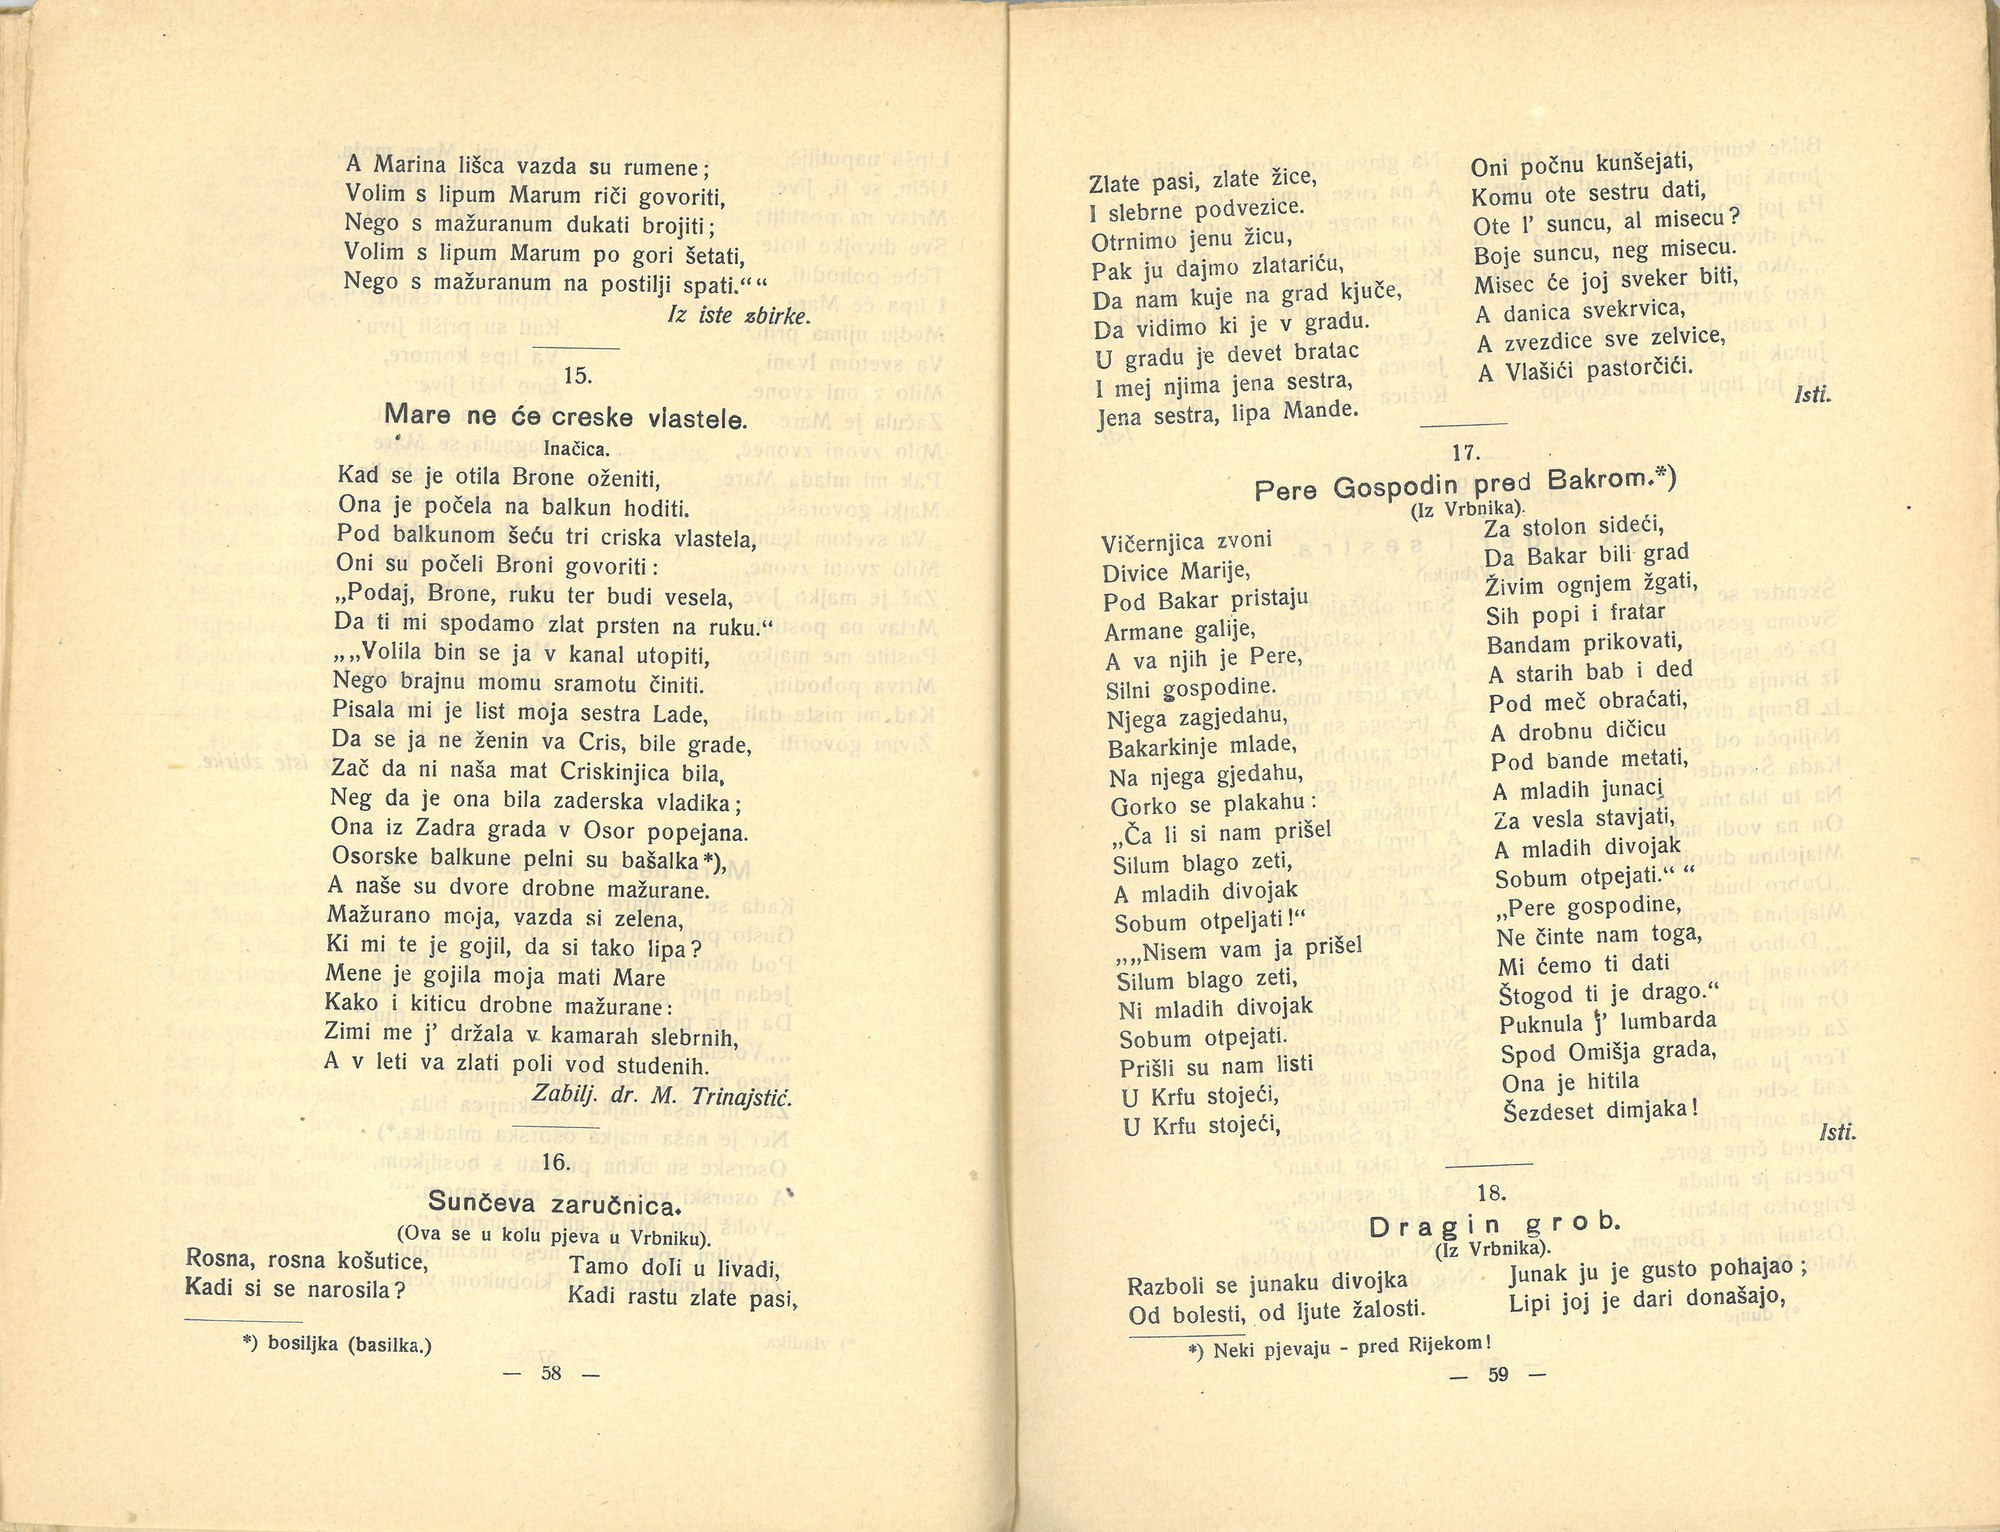 A Marina lišca vazda su rumene;
Volim s lipum Marum riči govoriti,
Nego s mažuranum dukati brojiti;
Volim s lipum Marum po gori šetati,
Nego s mažuranum na postilji spati.““
Iz iste zbirke.
15.
Mare ne će creske vlastele.
Inačica.
Kad se je otila Brone oženiti,
Ona je počela na balkun hoditi.
Pod balkunom šeću tri criska vlastela,
Oni su počeli Broni govoriti:
„Podaj, Brone, ruku ter budi vesela,
Da ti mi spodamo zlat prsten na ruku.“
„„Volila bin se ja v kanal utopiti,
Nego brajnu momu sramotu činiti.
Pisala mi je list moja sestra Lade,
Da se ja ne ženin va Cris, bile grade,
Zač da ni naša mat Criskinjica bila,
Neg da je ona bila zaderska vladika;
Ona iz Zadra grada v Osor popejana.
Osorske balkune pelni su bašalka*),
A naše su dvore drobne mažurane.
Mažurano moja, vazda si zelena,
Ki mi te je gojil, da si tako lipa?
Mene je gojila moja mati Mare
Kako i kiticu drobne mažurane:
Zimi me j’ držala v kamarah slebrnih,
A v leti va zlati poli vod studenih.
Zabilj. dr. M. Trinajstić.
16.
Sunčeva zaručnica.
(Ova se u kolu pjeva u Vrbniku).
Rosna, rosna košutice,
Kadi si se narosila?
Tamo doli u livadi,
Kadi rastu zlate pasi,
*) bosiljka (basilka.)
— 58 —
Zlate pasi, zlate žice,
I slebrne podvezice.
Otrnimo jenu žicu,
Pak ju dajmo zlatariću,
Da nam kuje na grad kjuče,
Da vidimo ki je v gradu.
U gradu je devet bratac
I mej njima jena sestra,
Jena sestra, lipa Mande.
Oni počnu kunšejati,
Komu ote sestru dati,
Ote l’ suncu, al misecu?
Boje suncu, neg misecu.
Misec će joj sveker biti,
A danica svekrvica,
A zvezdice sve zelvice,
A Vlašići pastorčići.
Isti.
17.
Pere Gospodin pred Bakrom.*)
(Iz Vrbnika).
Vičernjica zvoni
Divice Marije,
Pod Bakar pristaju
Armane galije,
A va njih je Pere,
Silni gospodine.
Njega zagjedahu,
Bakarkinje mlade,
Na njega gjedahu,
Gorko se plakahu:
„Ča li si nam prišel
Silum blago zeti,
A mladih divojak
Sobum otpeljati!“
„„Nisem vam ja prišel
Silum blago zeti,
Ni mladih divojak
Sobum otpejati.
Prišli su nam listi
U Krfu stojeći,
U Krfu stojeći,
Za stolon sideći,
Da Bakar bili grad
Živim ognjem žgati,
Sih popi i fratar
Bandam prikovati,
A starih bab i ded
Pod meč obraćati,
A drobnu dičicu
Pod bande metati,
A mladih junaci
Za vesla stavjati,
A mladih divojak
Sobum otpejati.“ “
„Pere gospodine,
Ne činte nam toga,
Mi ćemo ti dati
Štogod ti je drago.“
Puknula j’ lumbarda
Spod Omišja grada,
Ona je hitila
Šezdeset dimjaka!
Isti.
18.
Dragin grob.
(Iz Vrbnika).
Razboli se junaku divojka
Od bolesti, od ljute žalosti.
Junak ju je gusto pohajao;
Lipi joj je dari donašajo,
*) Neki pjevaju - pred Rijekom!
— 59 —